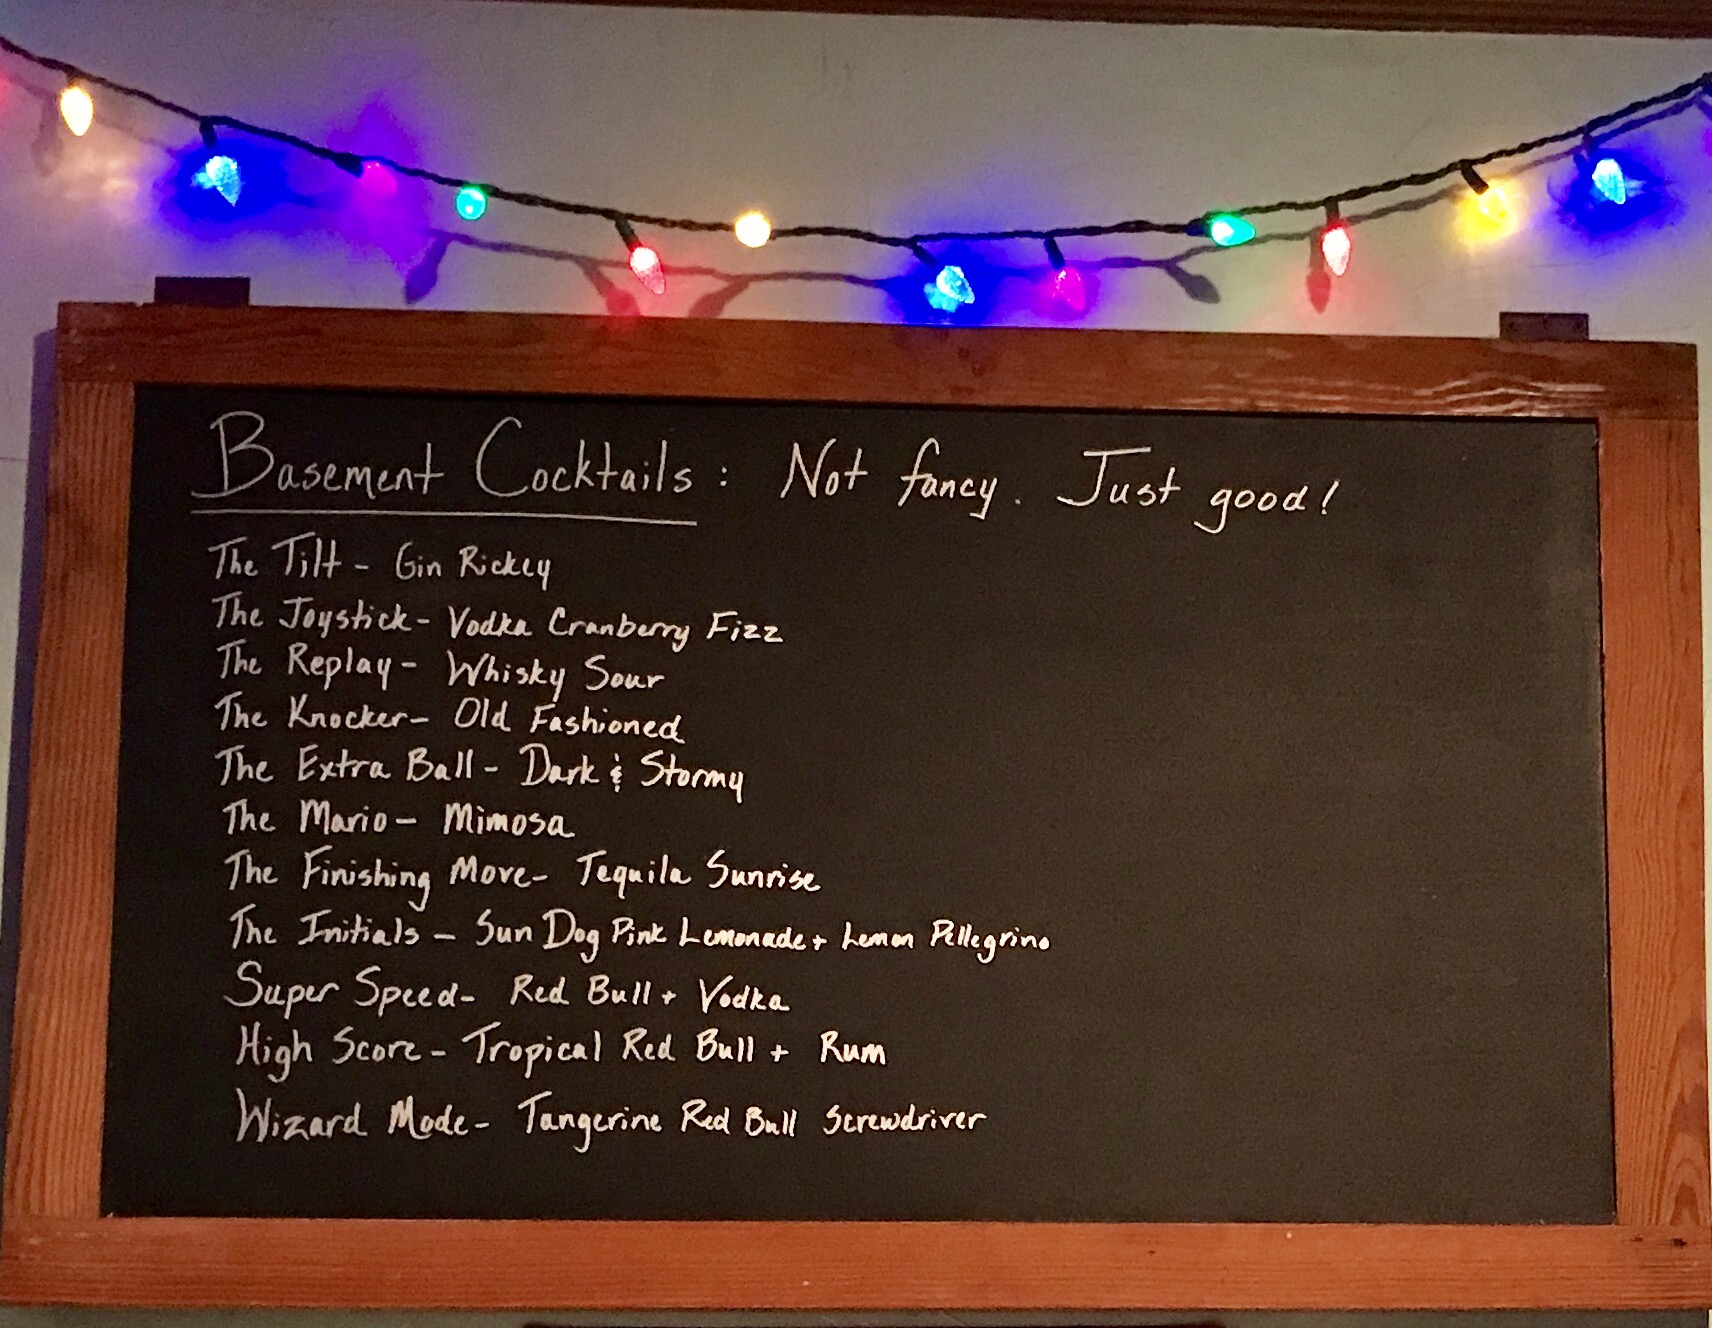 Basement Cocktails: Not fancy. Just good!
The Tilt - Gin Rickey
The Joystick - Vodka Cranberry Fizz
The Replay - Whisky Sour
The Knocker - Old Fashioned
The Extra Ball - Dark & Stormy
The Mario - Mimosa
The Finishing Move - Tequila Sunrise
The Initials - Sun Dog Pink Lemonade + Lemon Pellegrino
Super Speed - Red Bull + Vodka
High Score - Tropical Red Bull + Rum
Wizard Mode - Tangerine Red Bull Screwdriver